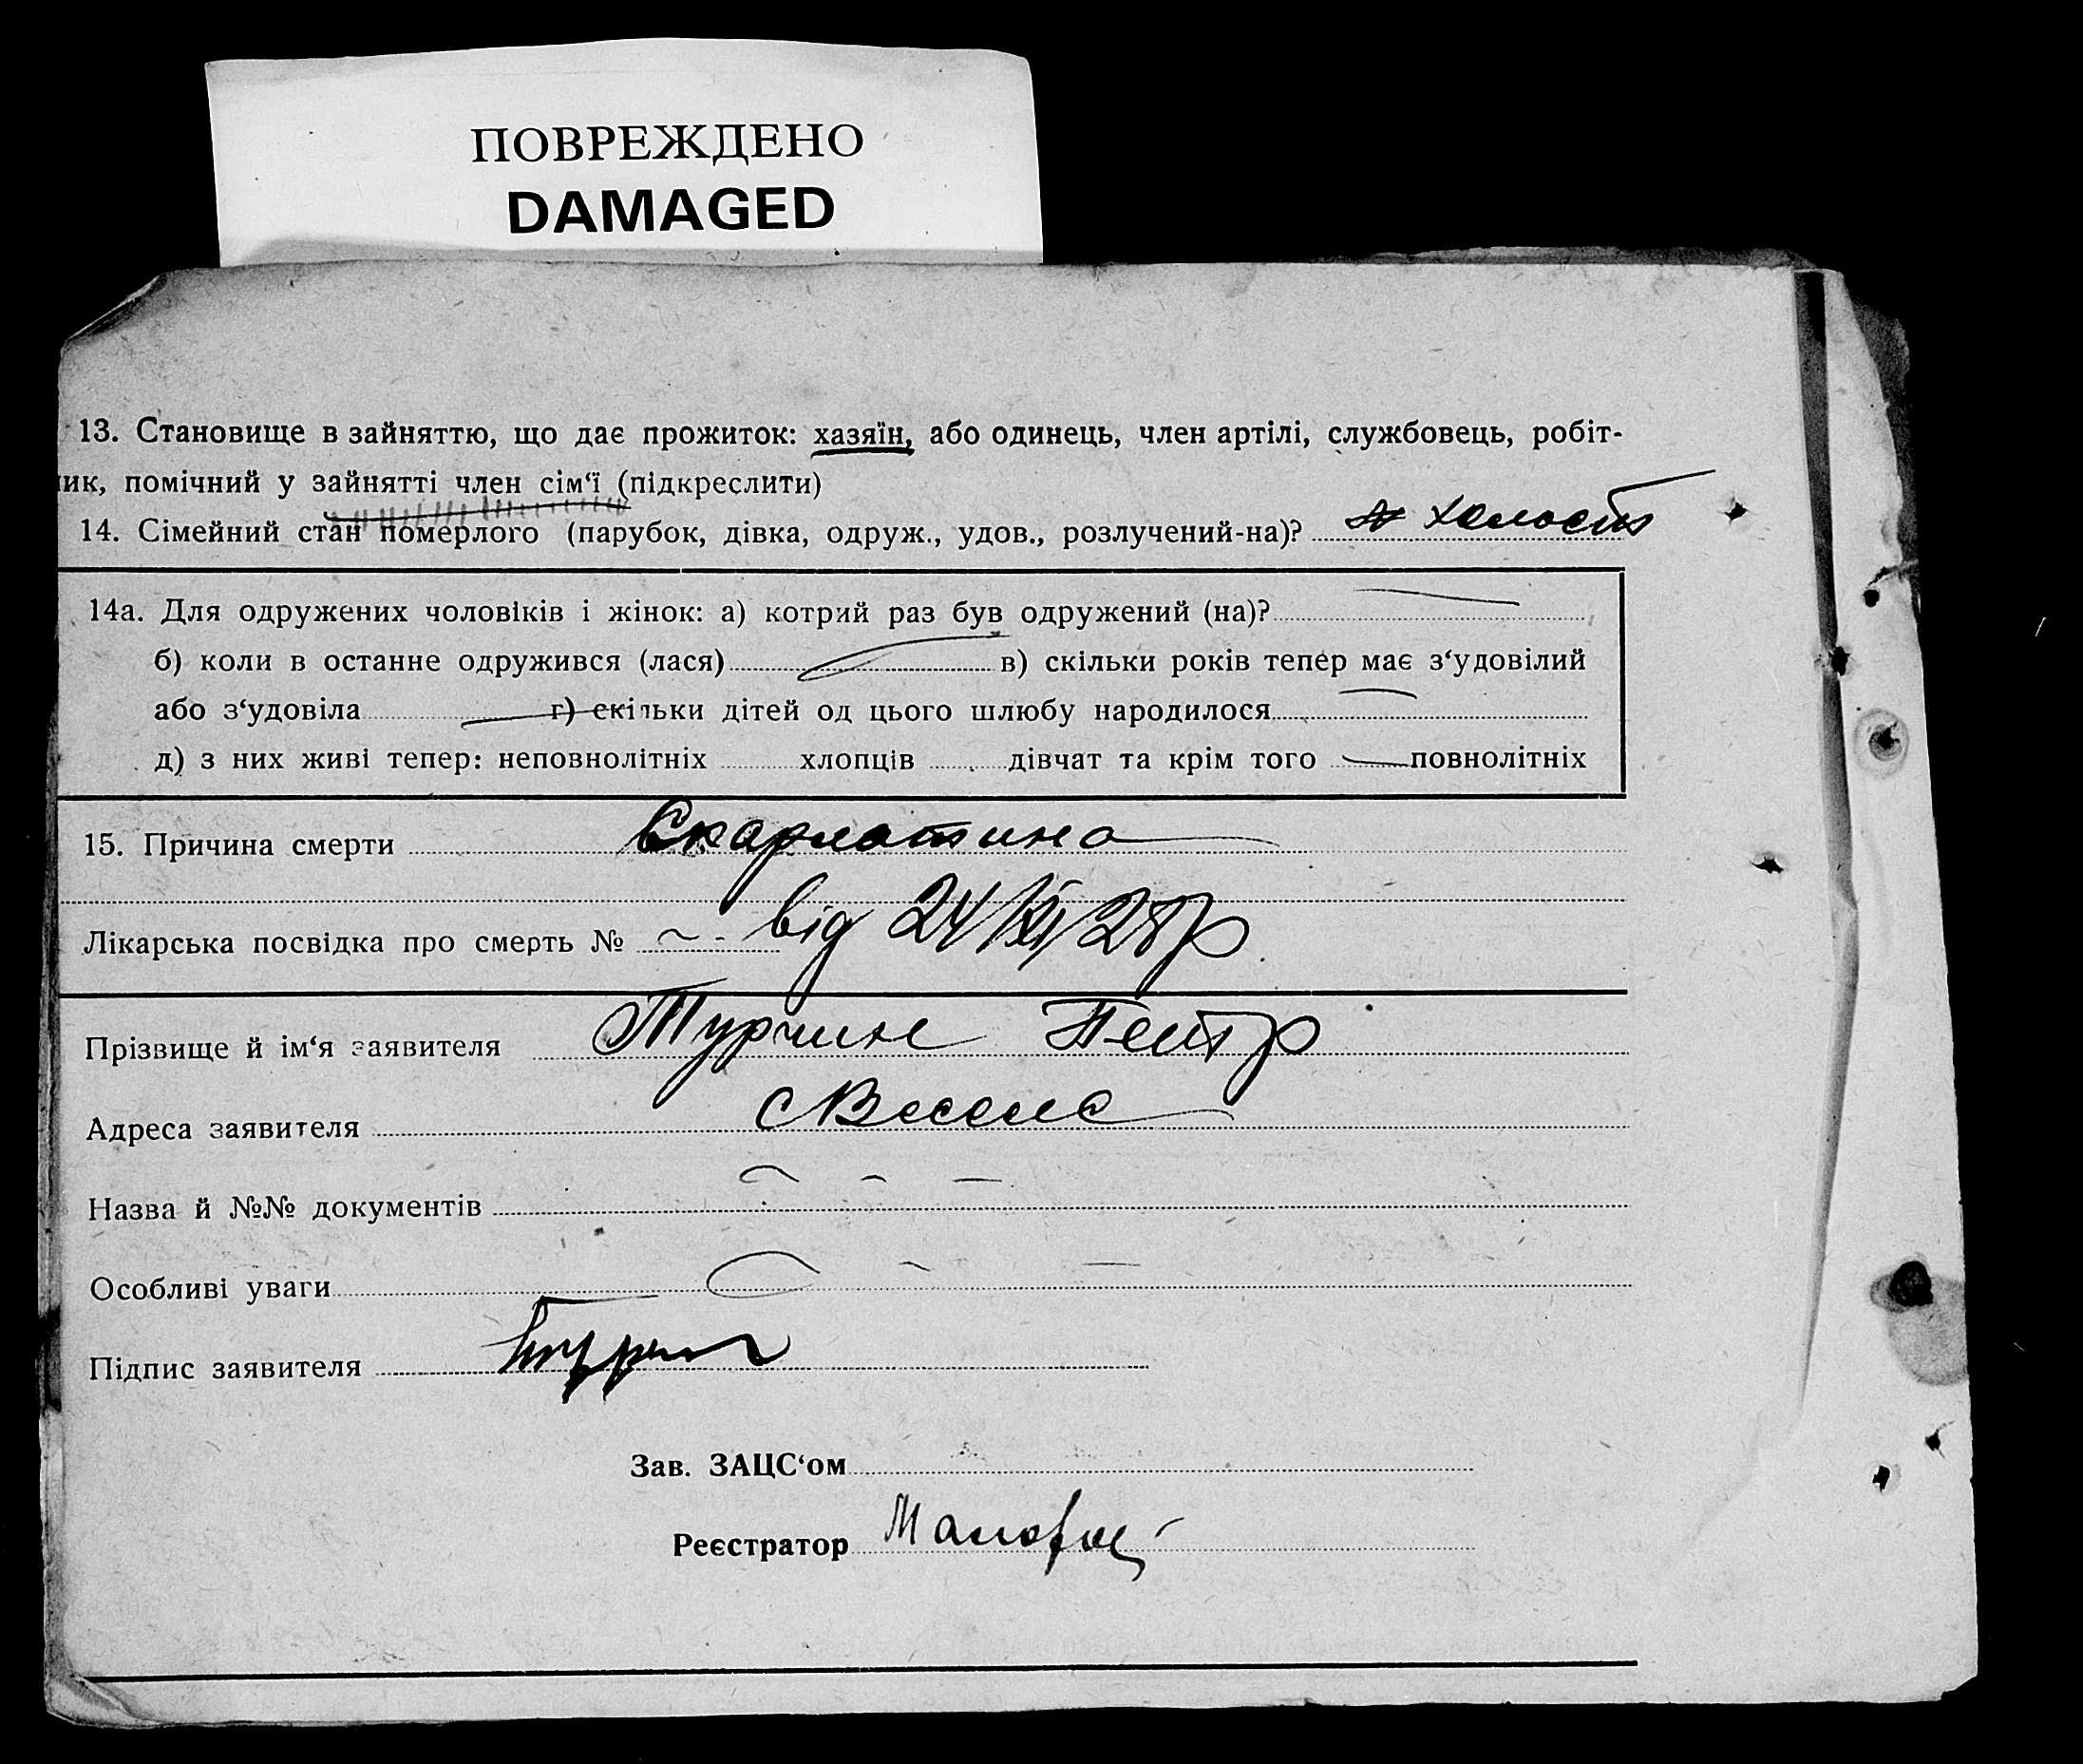 ПОВРЕЖДЕНО
DAMAGED
13. Становище в зайняттю, що дає прожиток: хазяїн, або одинець, член артілі, службовець, робіт-
ик, помічний у зайнятті член сім‘ї (підкреслити)
14. Сімейний стан померлого (парубок, дівка, одруж., удов., розлучений-на)? холост
14а. Для одружених чоловіків і жінок: а) котрий раз був одружений (на)?
б) коли в останне одружився (лася) в) скільки років тепер має з‘удовілий
або з‘удовіла г) скільки дітей од цього шлюбу народилося
д) з них живі тепер: неповнолітніх хлопців дівчат та крім того повнолітніх
15. Причина смерти Скарлатина
Лікарська посвідка про смерть № від 24/XI/28р
Прізвище й ім‘я заявителя Турчине Петр
Адреса заявителя с Веселе
Назва й №№ документів
Особливі уваги
Підпис заявителя
Зав. ЗАЦС‘ом
Реєстратор